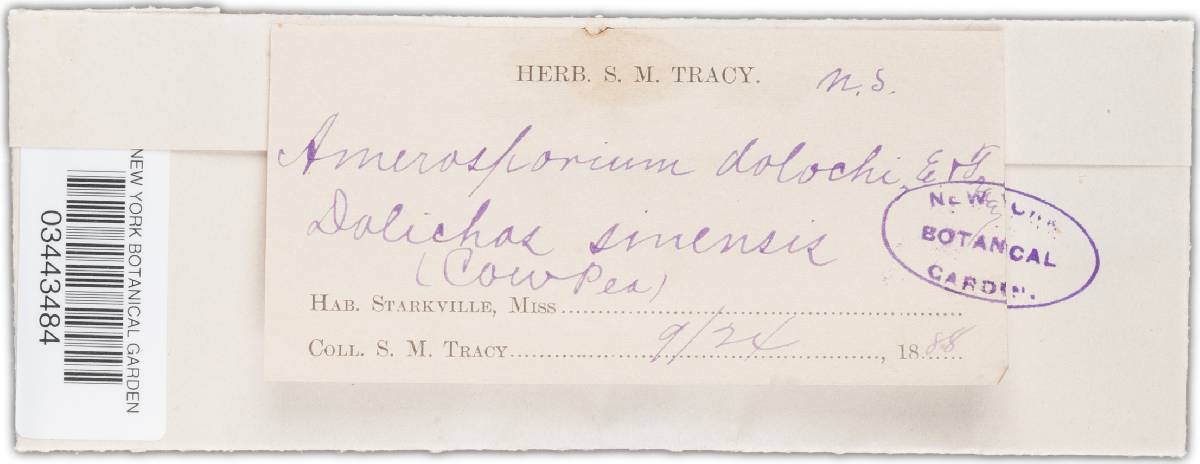 HERB. S. M. TRACY.
n. s.
Amerosporium dolochi, E & T,
Dolichos sinensis
(Cow Pea)
HAB. STARKVILLE, MISS
COLL. S. M. TRACY 9/24, 1888
NEW YORK
BOTANICAL
GARDEN.
NEW YORK BOTANICAL GARDEN
03443484